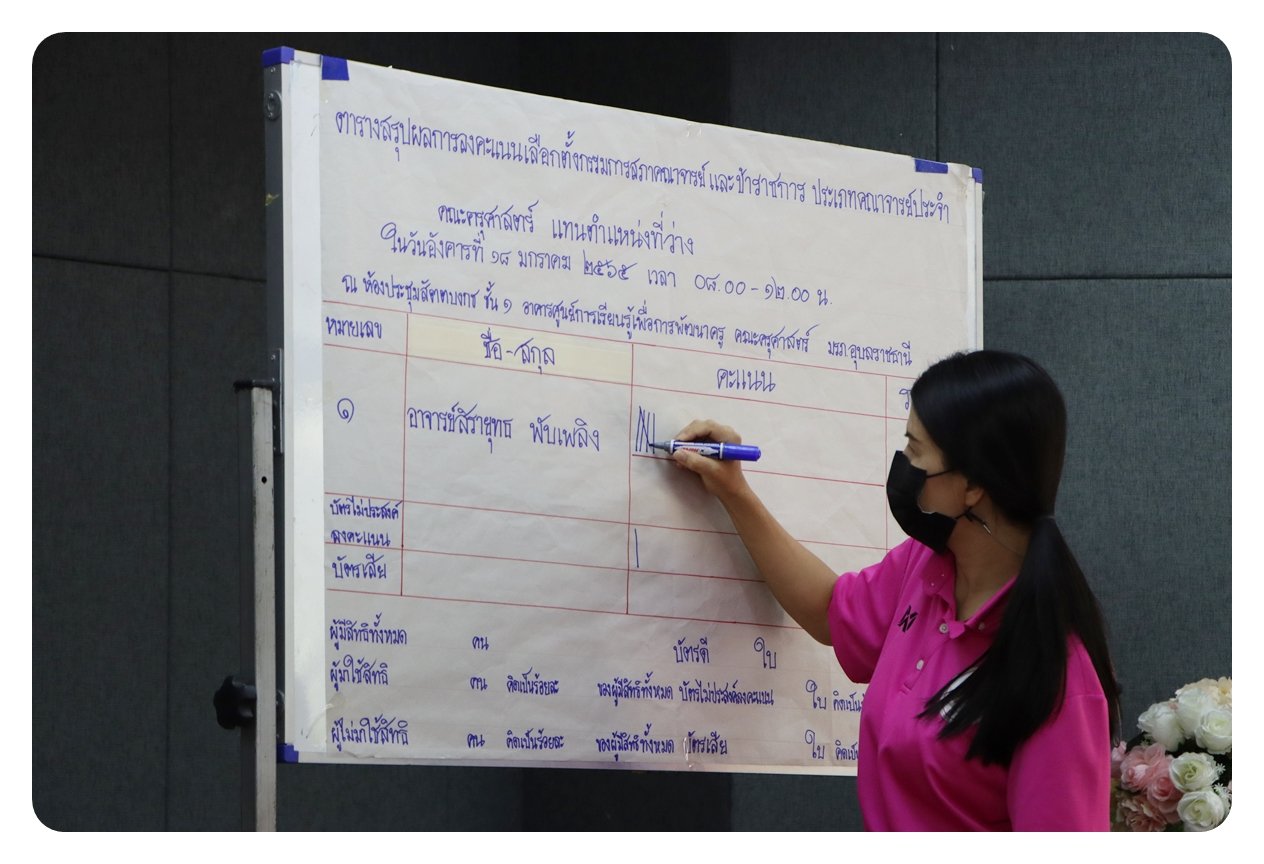 ตารางสรุปผลการลงคะแนนเลือกตั้งกรรมการสภาคณาจารย์และข้าราชการ ประเภทคณาจารย์ประจำ
คณะครุศาสตร์ แทนตำแหน่งที่ว่าง
ในวันอังคารที่ ๑๘ มกราคม ๒๕๖๕ เวลา ๐๘.๐๐ - ๑๒.๐๐ น.
ณ ห้องประชุมสัตตบงกช ชั้น ๑ อาคารศูนย์การเรียนรู้เพื่อการพัฒนาครู คณะครุศาสตร์ มรภ.อุบลราชธานี
หมายเลข ชื่อ - สกุล คะแนน
๑ อาจารย์สิรายุทธ พับเพลิง
บัตรไม่ประสงค์
ลงคะแนน
บัตรเสีย
ผู้มีสิทธิทั้งหมด คน บัตรดี ใบ
ผู้มาใช้สิทธิ คน คิดเป็นร้อยละ ของผู้มีสิทธิทั้งหมด บัตรไม่ประสงค์ลงคะแนน ใบ
ผู้ไม่มาใช้สิทธิ คน คิดเป็นร้อยละ ของผู้มีสิทธิทั้งหมด บัตรเสีย ใบ